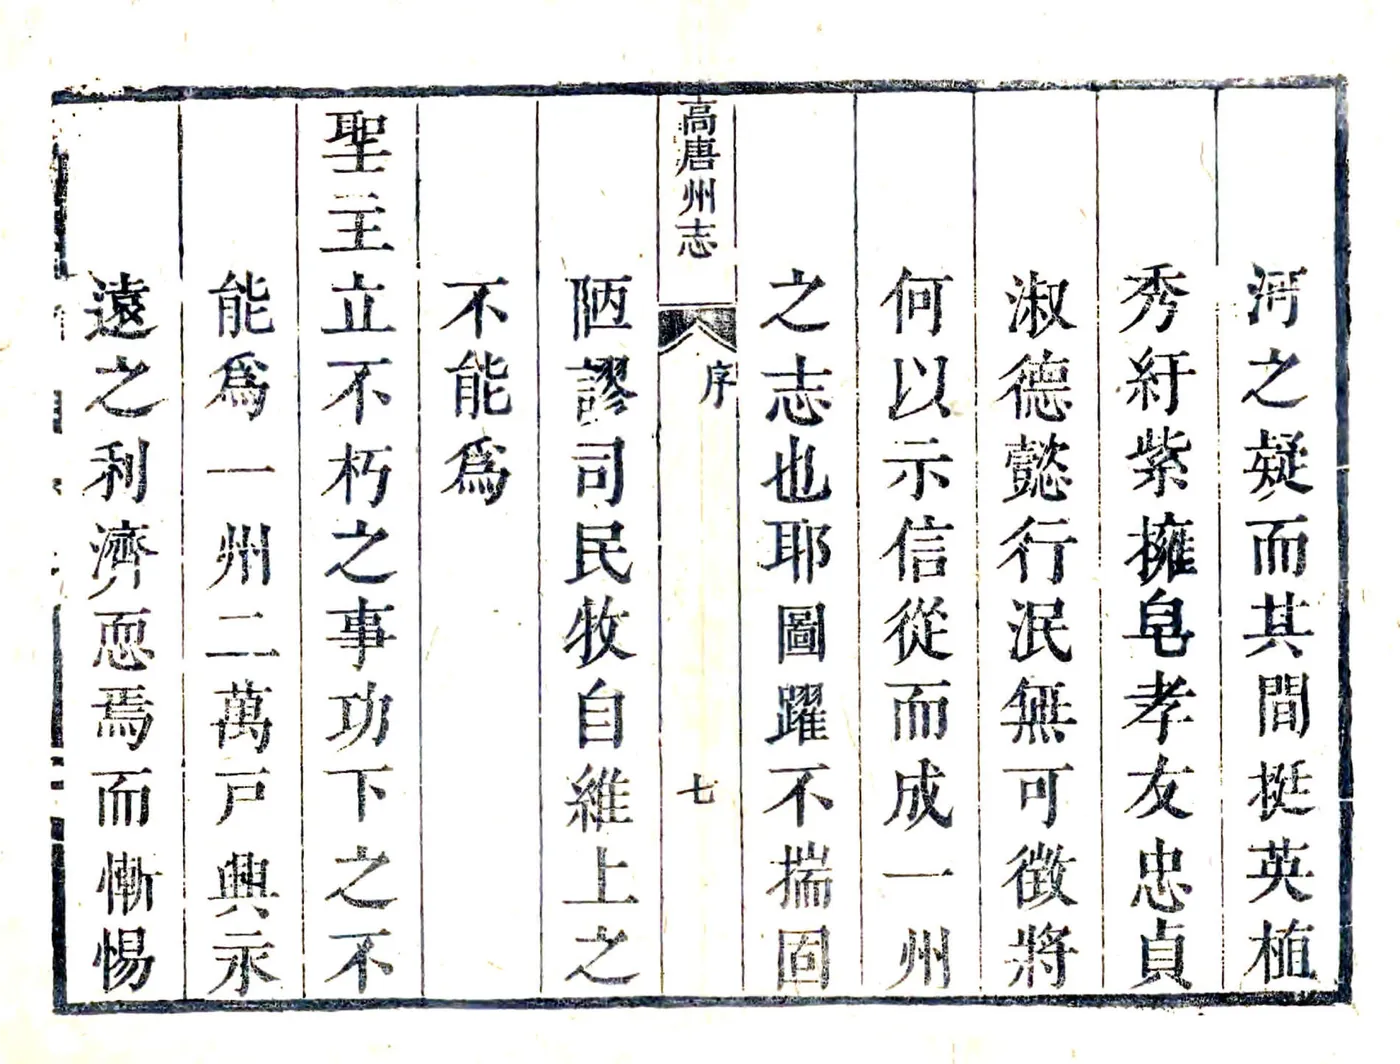 河之疑而其間挺英植
秀紆紫擁皂孝友忠貞
淑德懿行泯無可徵將
何以示信從而成一州
之志也耶圖躍不揣固
高唐州志
序
七
陋謬司民牧自維上之
不能為
聖主立不朽之事功下之不
能為一州二萬戸興永
遠之利濟恧焉而慚惕